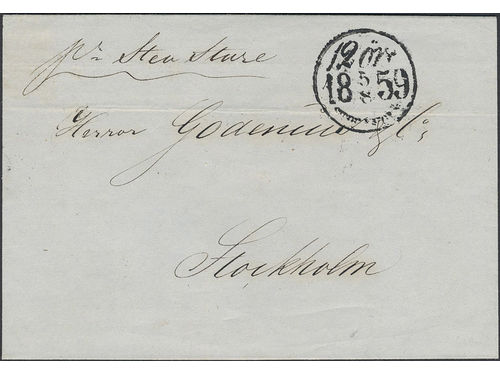 pr Sten Sture
12 öre
18 5/8 59
Herror Godenius & Co
Stockholm